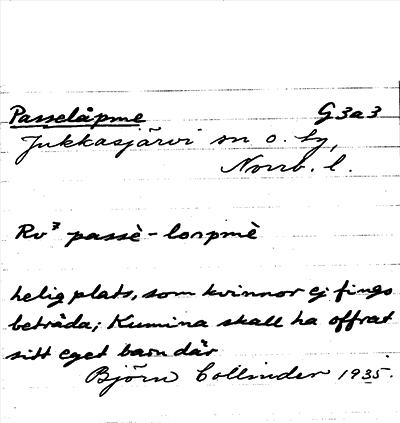 Passelåpme G3a3
Jukkasjärvi sn o. ty,
Norrb. l.
Rv⁷ passè-loɒpmè
helig plats, som kvinnor ej fingo
beträda; Kumina skall ha offrat
sitt eget barn där
Björn Collinder 1935.